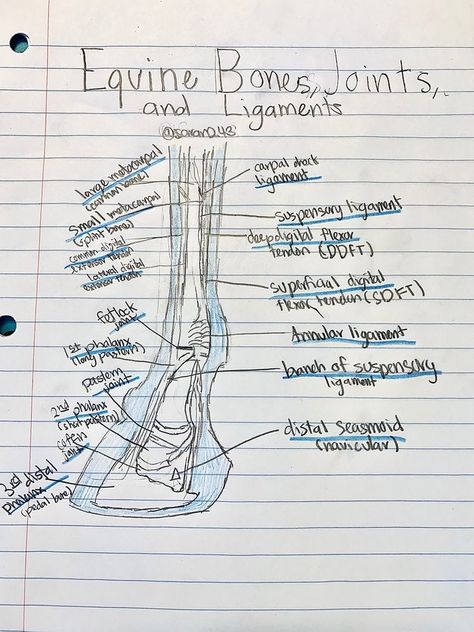 Equine Bones, Joints,
and Ligaments
large metacarpal
(cannon bone)
small metacarpal
(splint bone)
common digital
extensor tendon
lateral digital
extensor tendon
fetlock
joint
1st phalanx
(long pastern)
pastern
joint
2nd phalanx
(short pastern)
coffin
joint
3rd distal
phalanx
(pedal bone)
carpal check
ligament
suspensory ligament
deep digital flexor
tendon (DDFT)
superficial digital
flexor tendon (SDFT)
Annular ligament
banch of suspensory
ligament
distal seasmoid
(navicular)